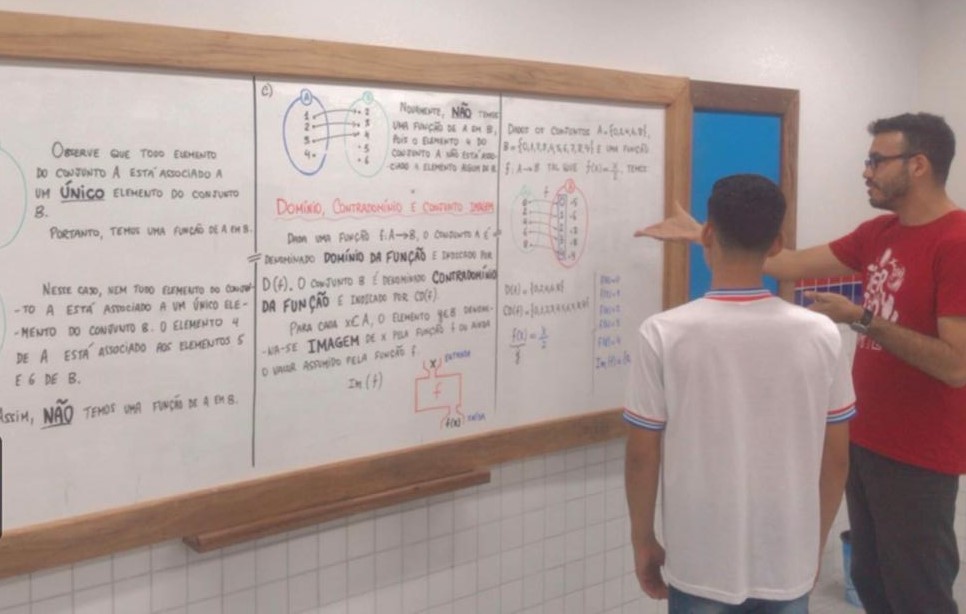 OBSERVE QUE TODO ELEMENTO
DO CONJUNTO A ESTÁ ASSOCIADO A
UM ÚNICO ELEMENTO DO CONJUNTO
B.
PORTANTO, TEMOS UMA FUNÇÃO DE A EM B.
NESSE CASO, NEM TODO ELEMENTO DO CONJUN-
-TO A ESTÁ ASSOCIADO A UM ÚNICO ELE-
-MENTO DO CONJUNTO B. O ELEMENTO 4
DE A ESTÁ ASSOCIADO AOS ELEMENTOS 5
E 6 DE B.
ASSIM, NÃO TEMOS UMA FUNÇÃO DE A EM B.
C)
A
1
2
3
4
2
3
4
5
6
NOVAMENTE, NÃO TEMOS
UMA FUNÇÃO DE A EM B,
POIS O ELEMENTO 4 DO
CONJUNTO A NÃO ESTÁ ASSO-
CIADO A ELEMENTO ALGUM DE B.
DOMÍNIO, CONTRADOMÍNIO E CONJUNTO IMAGEM
DADA UMA FUNÇÃO f: A→B, O CONJUNTO A É
DENOMINADO DOMÍNIO DA FUNÇÃO E INDICADO POR
D(f). O CONJUNTO B É DENOMINADO CONTRADOMÍNIO
DA FUNÇÃO E INDICADO POR CD(f).
PARA CADA x∈A, O ELEMENTO y∈B DENOMI-
-NA-SE IMAGEM DE x PELA FUNÇÃO f OU AINDA
O VALOR ASSUMIDO PELA FUNÇÃO f.
Im(f)
X ENTRADA
f
f(x) SAÍDA
DADOS OS CONJUNTOS A={0,2,4,6,8},
B={0,1,2,3,4,5,6,7,8,9} E UMA FUNÇÃO
f: A→B TAL QUE f(x)=x/2, TEMOS
f
D(f)={0,2,4,6,8}
CD(f)={0,1,2,3,4,5,6,7,8,9}
f(x)=x/2